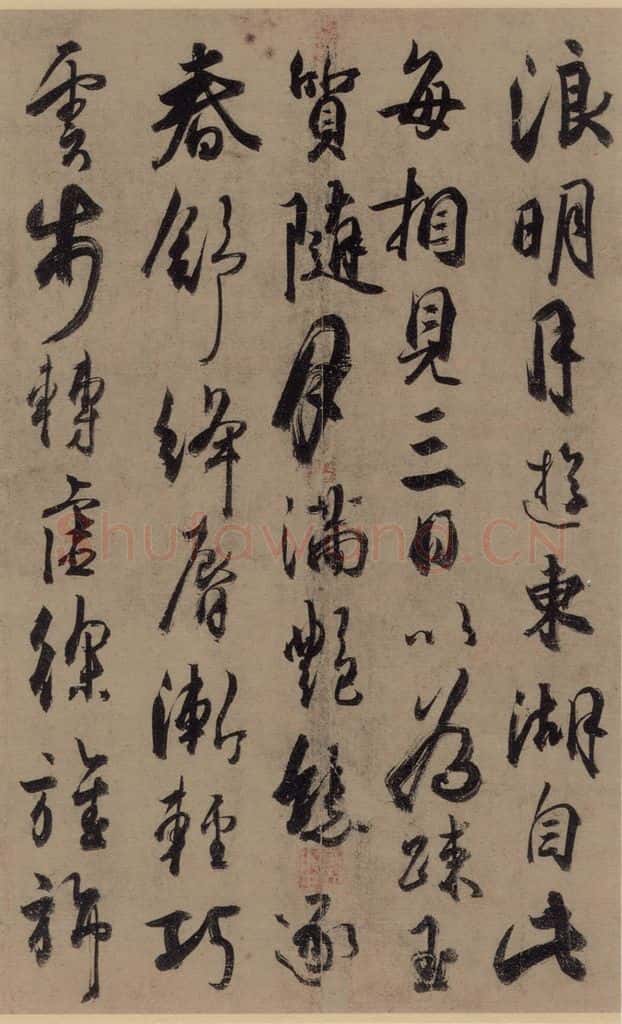 浪明月遊東湖自此
每相見三日以為踈玉
質隨月滿艷態逐
春舒絳脣漸輕巧
雲步轉虛徐旌旆
Shufawang.CN